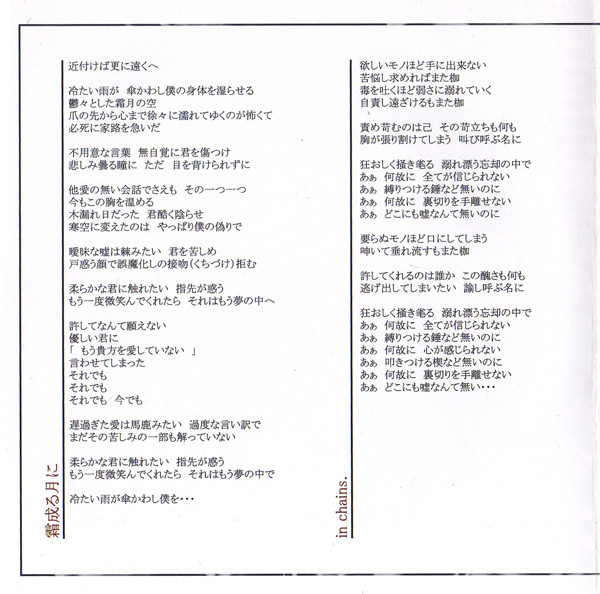 霜成る月に
近付けば更に遠くへ
冷たい雨が　傘かわし僕の身体を湿らせる
鬱々とした霜月の空
爪の先から心まで徐々に濡れてゆくのが怖くて
必死に家路を急いだ
不用意な言葉　無自覚に君を傷つけ
悲しみ曇る瞳に　ただ　目を背けられずに
他愛の無い会話でさえも　その一つ一つ
今もこの胸を温める
木漏れ日だった　君酷く陰らせ
寒空に変えたのは　やっぱり僕の偽りで
曖昧な嘘は棘みたい　君を苦しめ
戸惑う顔で誤魔化しの接吻（くちづけ）拒む
柔らかな君に触れたい　指先が惑う
もう一度微笑んでくれたら　それはもう夢の中へ
許してなんて願えない
優しい君に
「 もう貴方を愛していない 」
言わせてしまった
それでも
それでも
それでも　今でも
遅過ぎた愛は馬鹿みたい　過度な言い訳で
まだその苦しみの一部も解っていない
柔らかな君に触れたい　指先が惑う
もう一度微笑んでくれたら　それはもう夢の中で
冷たい雨が傘かわし僕を・・・
in chains.
欲しいモノほど手に出来ない
苦悩し求めればまた枷
毒を吐くほど弱さに溺れていく
自責し遠ざけるもまた枷
責め苛むのは己　その苛立ちも何も
胸が張り割けてしまう　叫び呼ぶ名に
狂おしく掻き毟る　溺れ漂う忘却の中で
あぁ　何故に　全てが信じられない
あぁ　縛りつける錘など無いのに
あぁ　何故に　裏切りを手離せない
あぁ　どこにも嘘なんて無いのに
要らぬモノほど口にしてしまう
呻いて垂れ流すもまた枷
許してくれるのは誰か　この醜さも何も
逃げ出してしまいたい　諭し呼ぶ名に
狂おしく掻き毟る　溺れ漂う忘却の中で
あぁ　何故に　全てが信じられない
あぁ　縛りつける錘など無いのに
あぁ　何故に　心が感じられない
あぁ　叩きつける楔など無いのに
あぁ　何故に　裏切りを手離せない
あぁ　どこにも嘘なんて無い・・・